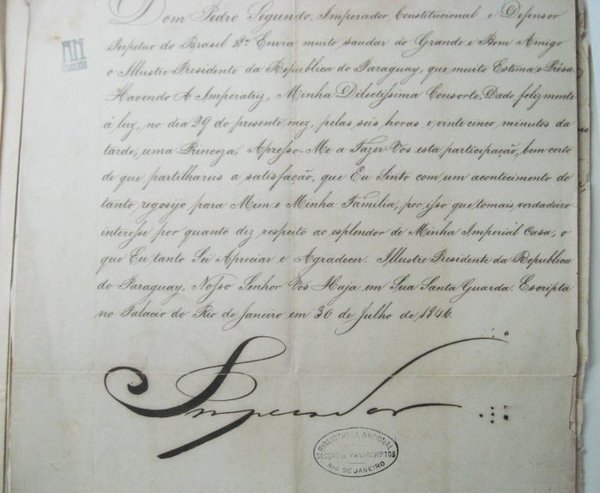 Dom Pedro Segundo, Imperador Constitucional e Defensor
Perpetuo do Brasil &ª Envia muito saudar ao Grande e Bom Amigo
o Illustre Presidente da Republica do Paraguay, que muito Estima e Présa.
Havendo A Imperatriz, Minha Dilectissima Consorte, Dado felizmente
á luz, no dia 29 do presente mez, pelas seis horas e vinte cinco minutos da
tarde, uma Princeza, Apresso-Me a Fazer Vós esta participação, bem certo
de que partilhareis a satisfacão, que Eu Sinto com um acontecimento de
tanto regosijo para Mim e Minha Familia, por isso que tomais verdadeiro
interesse por quanto diz respeito ao esplendor de Minha Imperial Casa, o
que Eu tanto Sei Apreciar e Agradecer. Illustre Presidente da Republica
do Paraguay. Nosso Senhor Vos Haja em Sua Santa Guarda. Escripta
no Palacio do Rio de Janeiro em 30 de Julho de 1846.
Imperador
AN
BIBLIOTHECA NACIONAL
SECÇÃO DE MANUSCRIPTOS
RIO DE JANEIRO